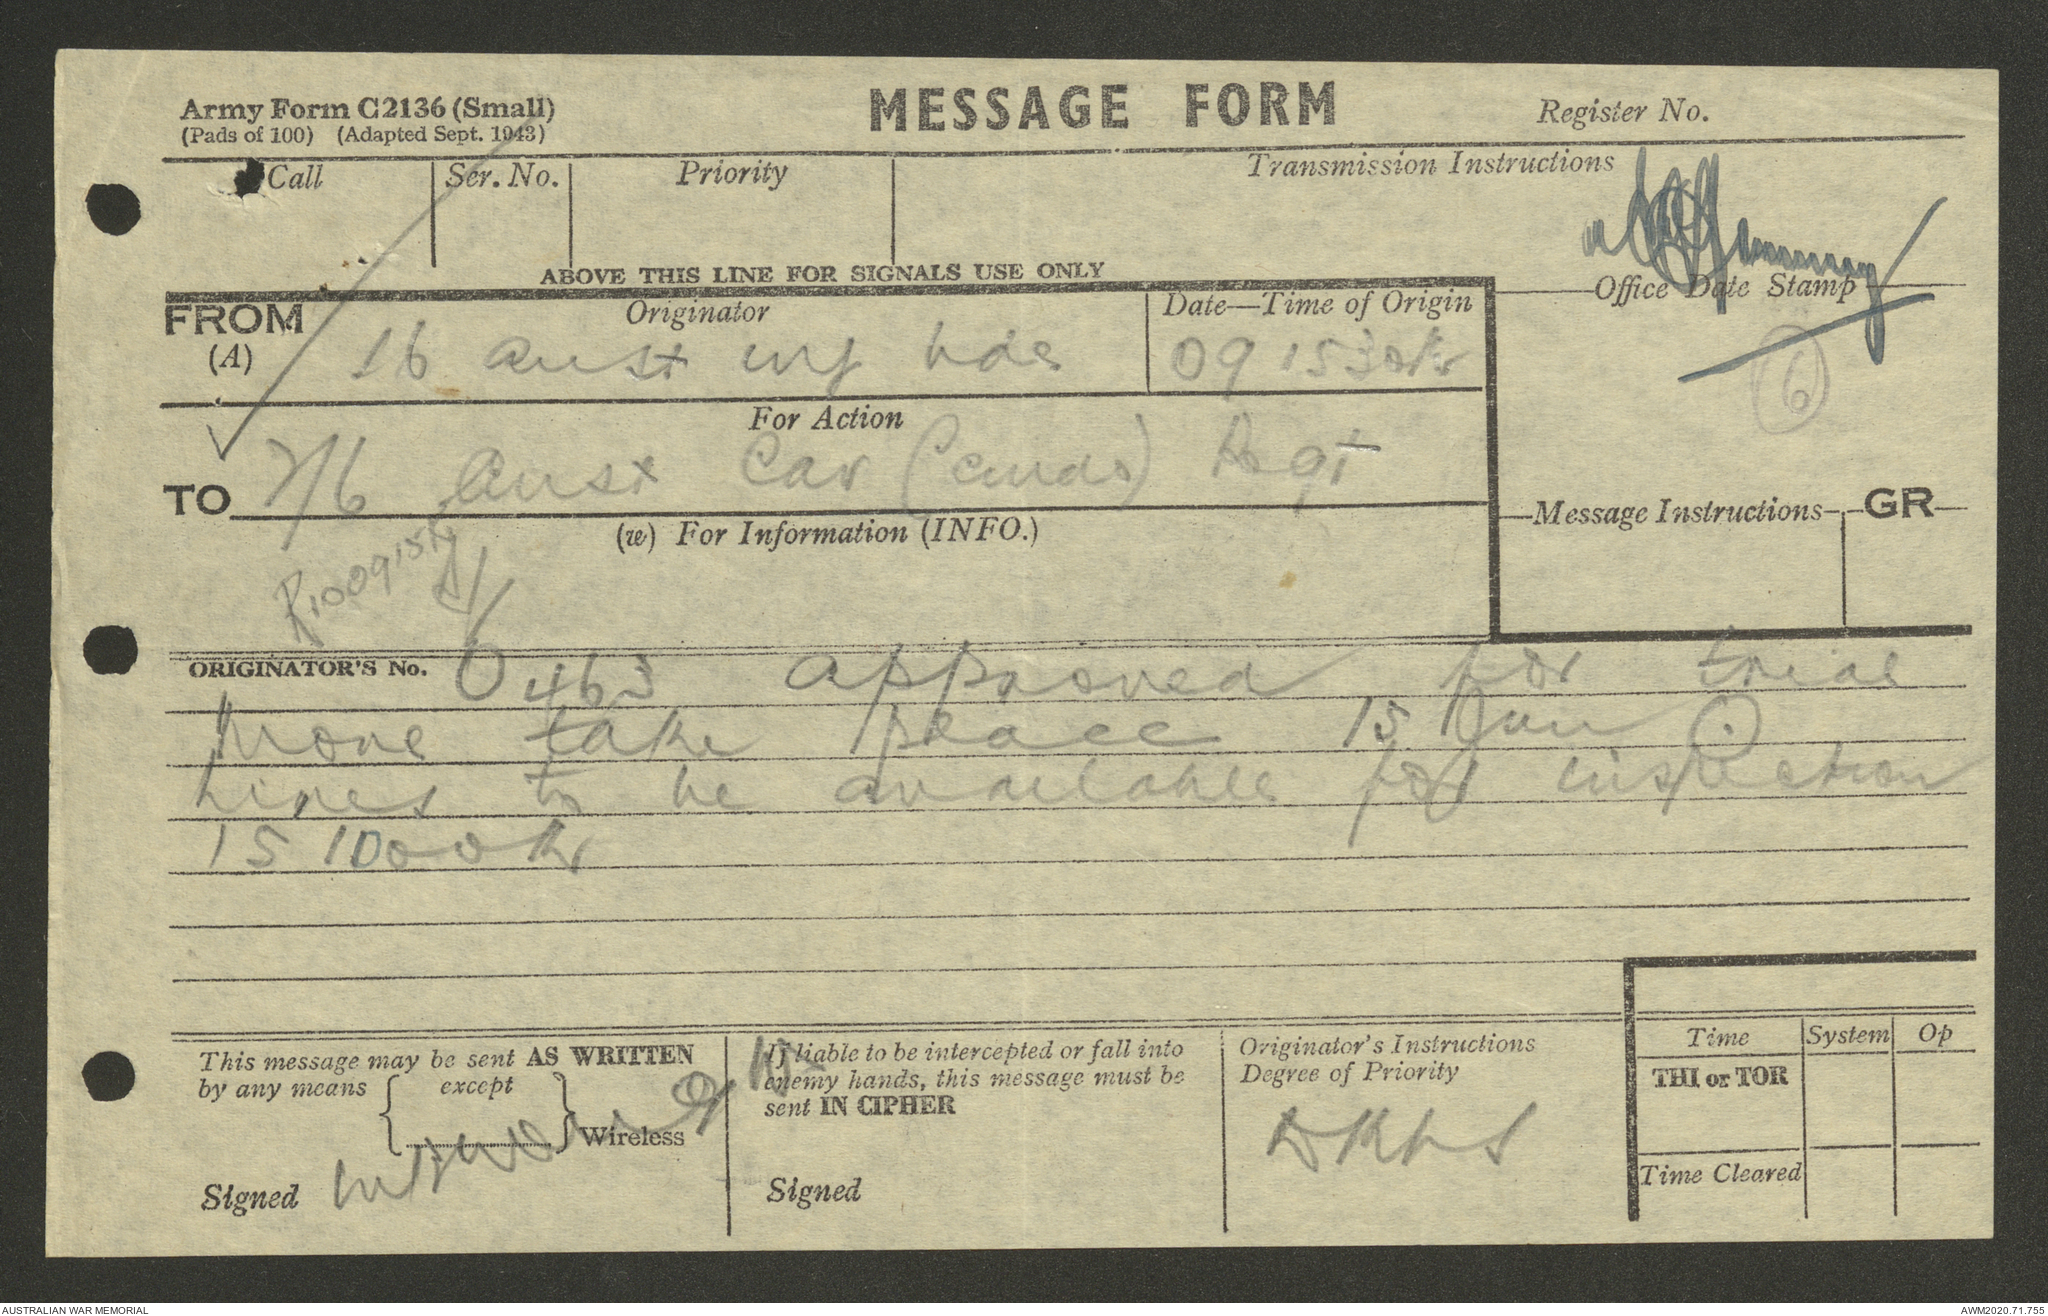 Army Form C2136 (Small)
(Pads of 100) (Adapted Sept. 1943)
MESSAGE FORM
Register No.
Call
Ser. No.
Priority
Transmission Instructions
ABOVE THIS LINE FOR SIGNALS USE ONLY
Office Date Stamp
FROM
(A)
Originator
16 Aust inf bde
Date—Time of Origin
09 1530hr
6
For Action
TO
2/6 Aust Cav (Comdo) Regt
(w) For Information (INFO.)
Message Instructions
GR
ORIGINATOR'S No.
O 463 approved for trial
move take place 15 Jun .
lines to be available for inspection
15 1000hr
This message may be sent AS WRITTEN
by any means except
Wireless
Signed
If liable to be intercepted or fall into
enemy hands, this message must be
sent IN CIPHER
Signed
Originator's Instructions
Degree of Priority
Time
System
Op
THI or TOR
Time Cleared
AUSTRALIAN WAR MEMORIAL
AWM2020.71.755